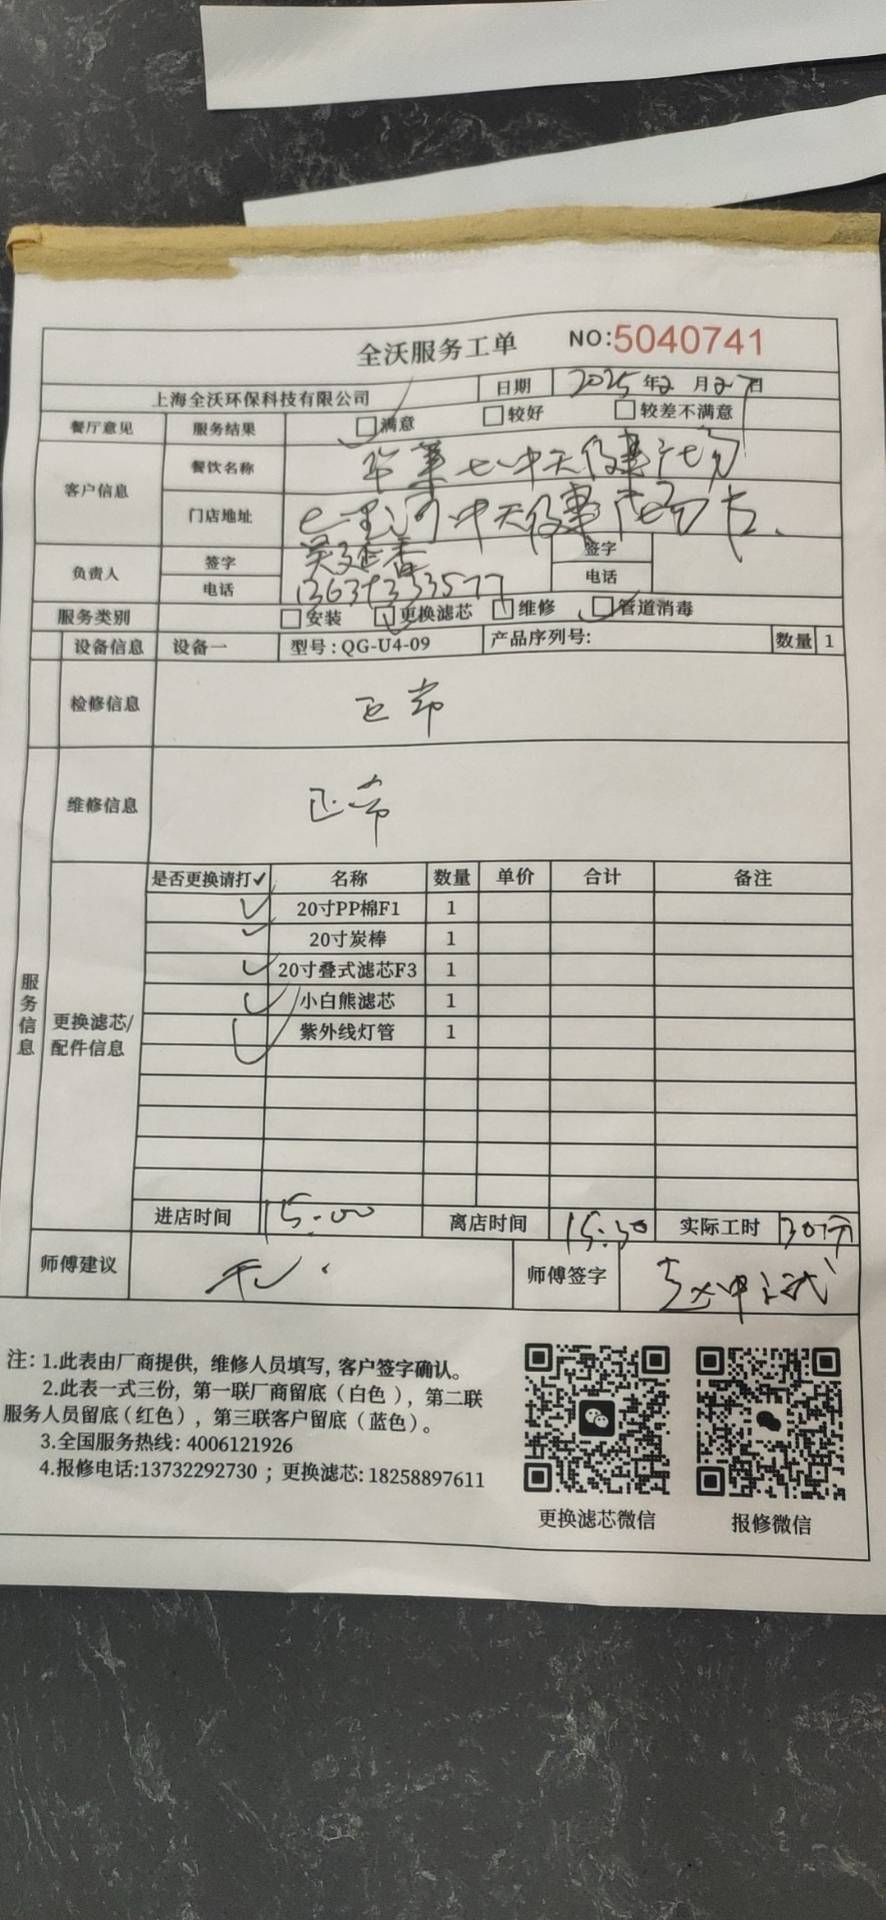 全沃服务工单 NO:5040741
上海全沃环保科技有限公司 日期 2025年2月27日
餐厅意见 服务结果 满意 较好 较差不满意
客户信息 餐饮名称 华莱士
门店地址
负责人 签字 签字
电话 13637353577 电话
服务类别 安装 更换滤芯 维修 管道消毒
设备信息 设备一 型号:QG-U4-09 产品序列号: 数量 1
检修信息 正常
维修信息 正常
服务信息
更换滤芯/配件信息
是否更换请打✓ 名称 数量 单价 合计 备注
✓ 20寸PP棉F1 1
✓ 20寸炭棒 1
✓ 20寸叠式滤芯F3 1
✓ 小白熊滤芯 1
✓ 紫外线灯管 1
进店时间 15:00 离店时间 15:30 实际工时 30分
师傅建议 无. 师傅签字
注: 1.此表由厂商提供, 维修人员填写, 客户签字确认。
2.此表一式三份, 第一联厂商留底 (白色), 第二联
服务人员留底(红色), 第三联客户留底 (蓝色)。
3.全国服务热线: 4006121926
4.报修电话:13732292730 ; 更换滤芯: 18258897611
更换滤芯微信 报修微信